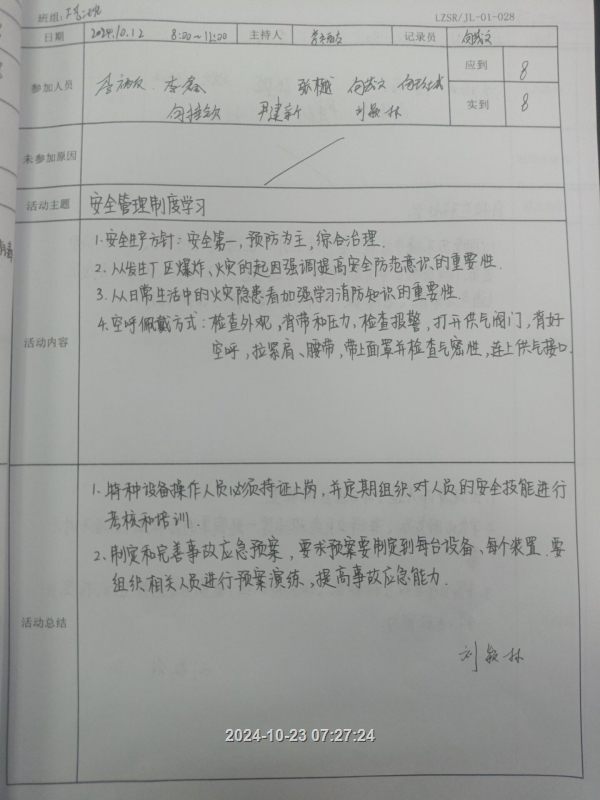 班组:
LZSR/JL-01-028
日期 2024.10.12 8:00～11:00 主持人 记录员
参加人员 应到 8
实到 8
刘毅林
未参加原因
活动主题 安全管理制度学习
1.安全生产方针：安全第一，预防为主，综合治理.
2.从发生厂区爆炸、火灾的起因强调提高安全防范意识的重要性.
3.从日常生活中的火灾隐患看加强学习消防知识的重要性.
活动内容
4.空呼佩戴方式：检查外观，背带和压力，检查报警，打开供气阀门，背好
空呼，拉紧肩、腰带，带上面罩并检查气密性，连上供气接口.
1.特种设备操作人员必须持证上岗，并定期组织对人员的安全技能进行
考核和培训.
2.制定和完善事故应急预案，要求预案要制定到每台设备、每个装置.要
组织相关人员进行预案演练、提高事故应急能力.
活动总结
刘毅林
2024-10-23 07:27:24